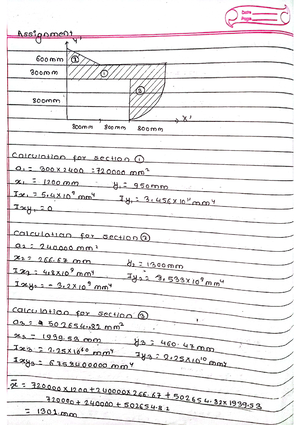 Date
Page
Assignment
Y'
600mm
300mm
800mm
①
②
③
X'
800mm 800mm 800mm
Calculation for section ①
a₁ = 300x2400 = 720000 mm²
x₁ = 1200mm y₁ = 950mm
Ix₁ = 5.4x10⁹ mm⁴ Iy₁ = 3.456x10¹¹ mm⁴
Ixy₁ = 0
Calculation for section ②
a₂ = 240000 mm²
x₂ = 266.67 mm y₂ = 1300mm
Ix₂ = 4.8x10⁹ mm⁴ Iy₂ = 8.533x10⁹ mm⁴
Ixy₂ = -3.2x10⁹ mm⁴
Calculation for section ③
a₃ = 502654.82 mm²
x₃ = 1939.53 mm y₃ = 460.47 mm
Ix₃ = 2.25x10¹⁰ mm⁴ Iy₃ = 2.25x10¹⁰ mm⁴
Ixy₃ = mm⁴
x̄ = 720000x1200+240000x266.67+502654.82x1939.53
720000+240000+502654.82
= 1301 mm